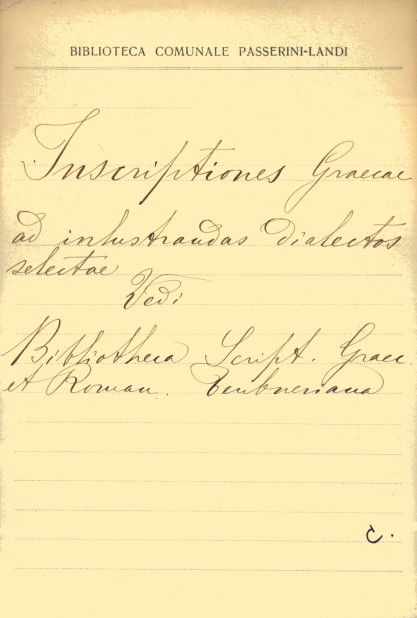 BIBLIOTECA COMUNALE PASSERINI-LANDI
Inscriptiones Graecae
ad inlustrandas dialectos
selectae
Vedi
Bibliotheca Script. Graec.
et Roman. Teubneriana
C.